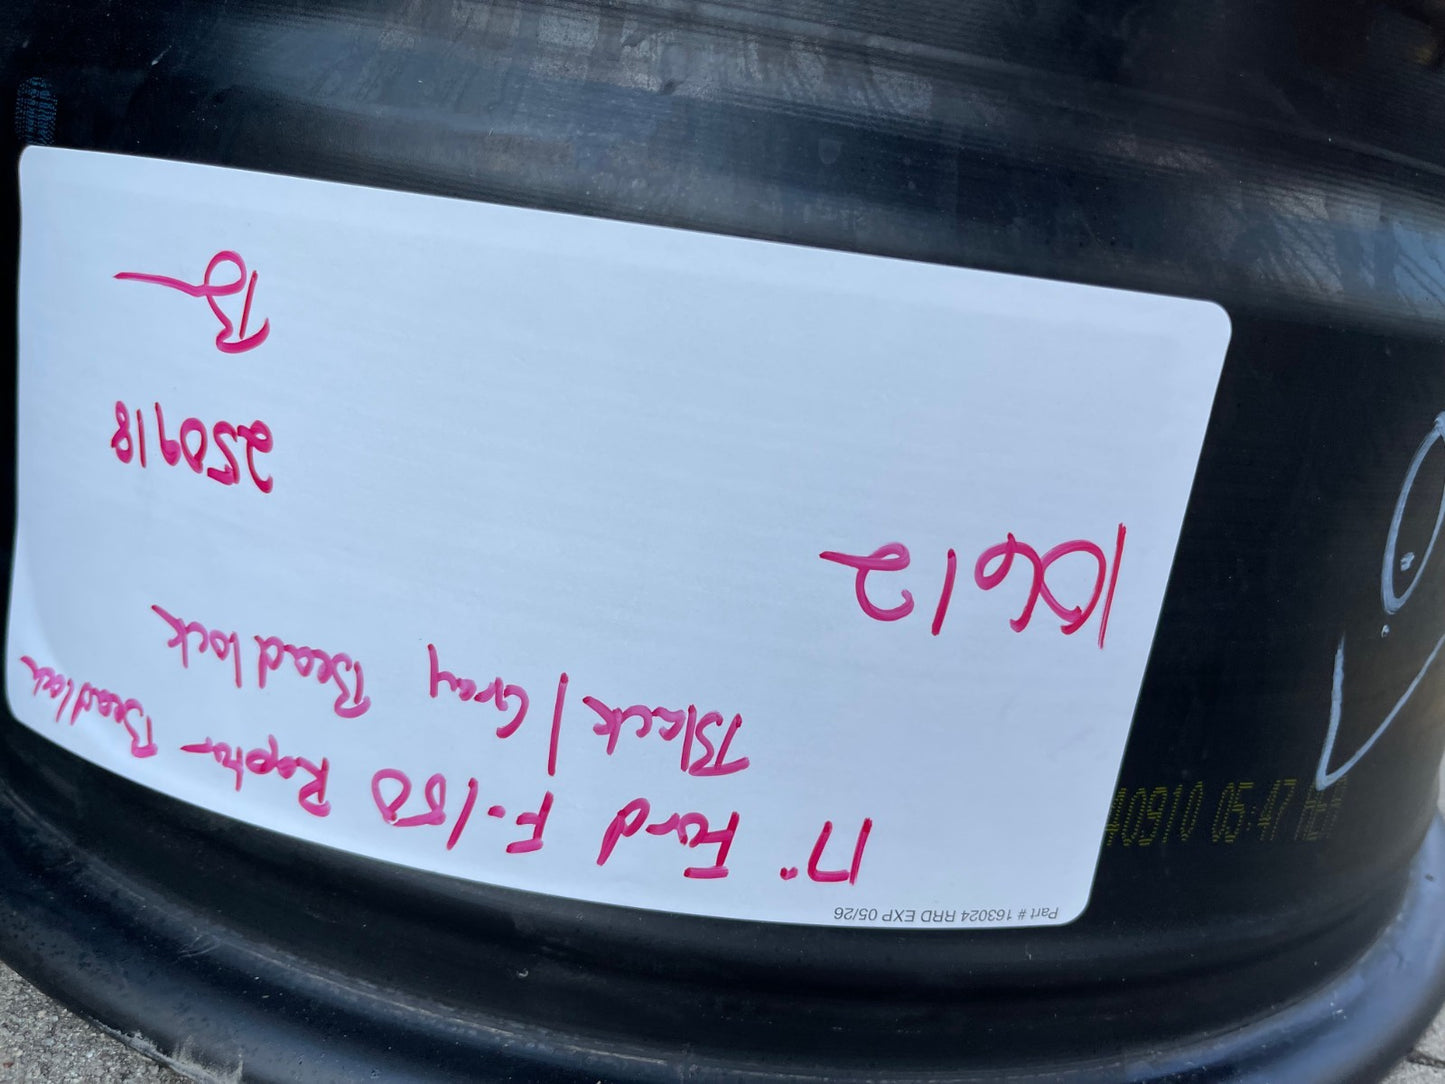 Part # 163024 RRD EXP 05/26
17" Ford F-150 Raptor Beadlock
Black/Gray Beadlock
10612
250918
B
40910 05:47 AER